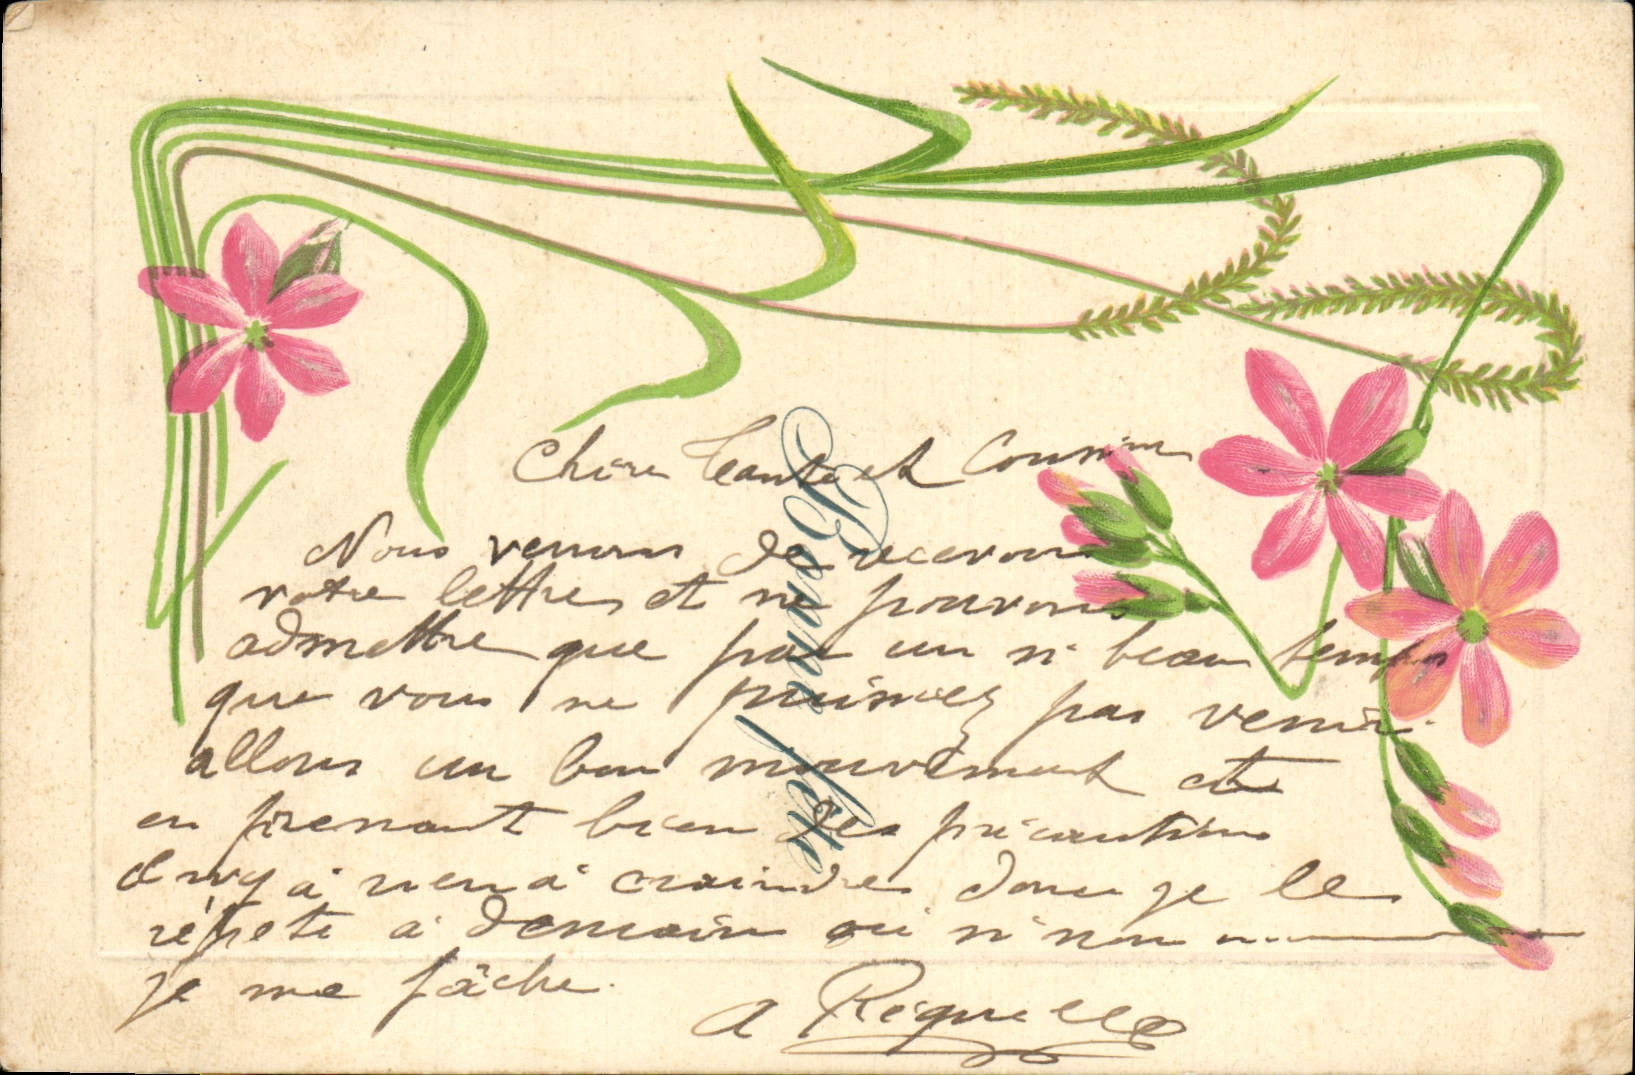 Chère Tante et Cousin
Nous venons de recevoir
votre lettre, et ne pouvons
admettre que par un si beau temps
que vous ne puissiez pas venir
allons un bon mouvement et
en prenant bien des précautions
il n'y a rien à craindre donc je le
répète à demain ou si non
je me fâche.
A Réquelle
Bonne fête